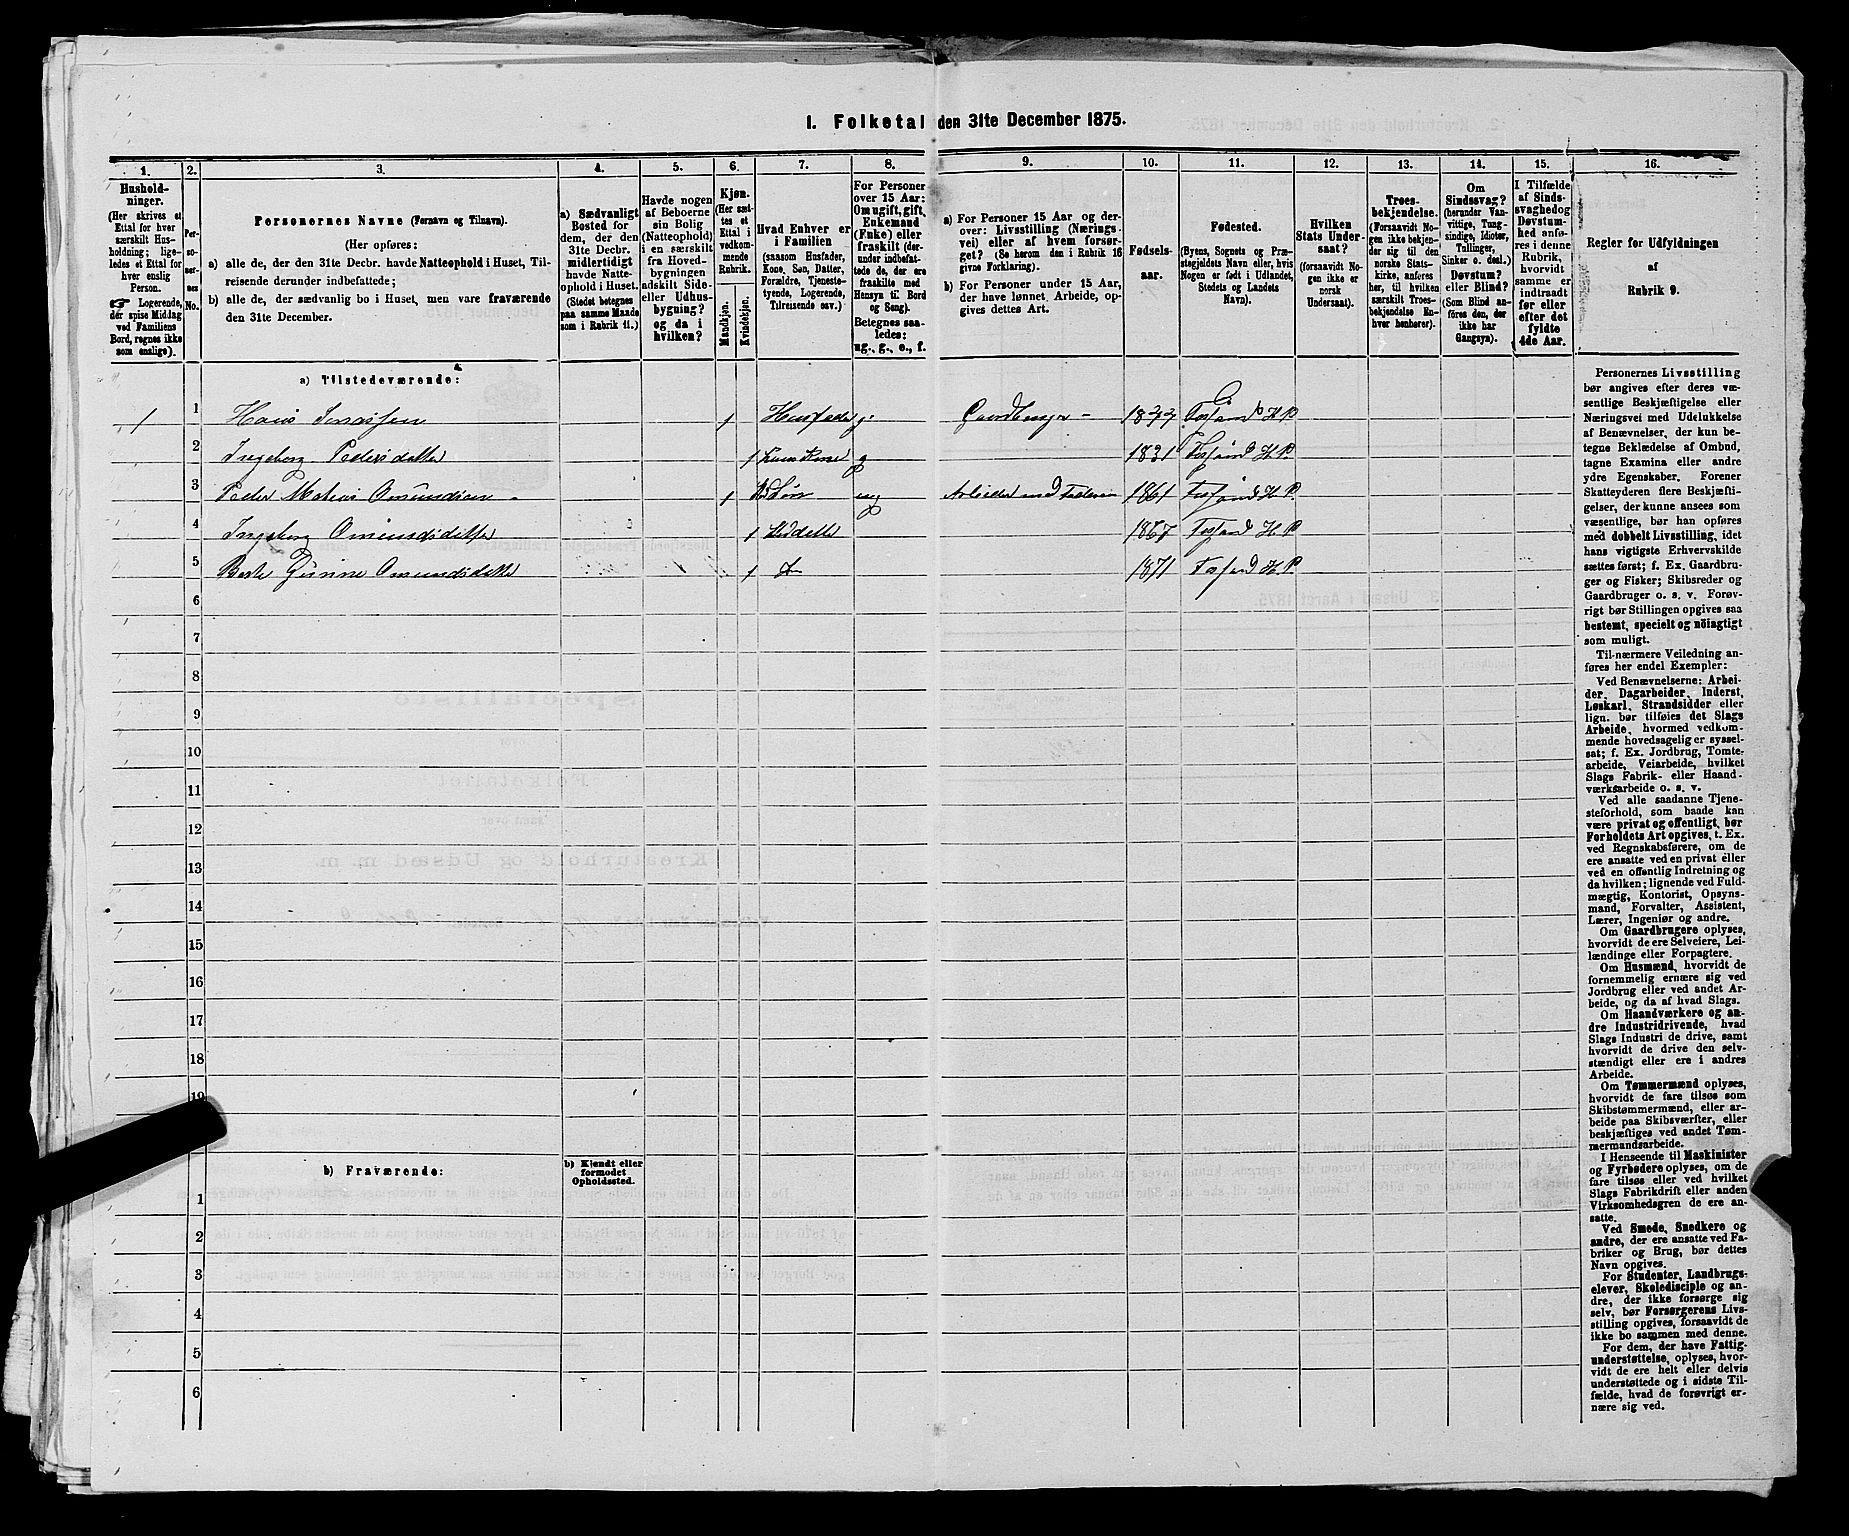 I. Folketal den 31te December 1875.
1. 2. 3. 4. 5. 6. 7. 8. 9. 10. 11. 12. 13. 14. 15. 16.
Hushold-
ninger.
(Her skrives et
Ettal for hver
særskilt Hus-
holdning; lige-
ledes et Ettal for
hver enslig
Person.
☞ Logerende,
der spise Middag
ved Familiens
Bord, regnes ikke
som enslige).
Per-
so-
ner-
nes
No.
Personernes Navne (Fornavn og Tilnavn).
(Her opføres:
a) alle de, der den 31te Decbr. havde Natteophold i Huset, Til-
reisende derunder indbefattede;
b) alle de, der sædvanlig bo i Huset, men vare fraværende
den 31te December.
a) Sædvanligt
Bosted for
dem, der den
31te Decbr.
midlertidigt
havde Natte-
ophold i Huset.
(Stedet betegnes
paa samme Maade
som i Rubrik 11.)
Havde nogen
af Beboerne
sin Bolig
(Natteophold)
i en særskilt
fra Hoved-
bygningen
adskilt Side-
eller Udhus-
bygning?
og da i
hvilken?
Kjøn.
(Her sæt-
tes et
Ettal i
vedkom-
mende
Rubrik.
Mandkjøn.
Kvindekjøn.
Hvad Enhver er
i Familien
(saasom Husfader,
Kone, Søn, Datter,
Forældre, Tjeneste-
tyende, Logerende,
Tilreisende osv.)
For Personer
over 15 Aar:
Om ugift, gift,
Enkemand
(Enke) eller
fraskilt (der-
under indbefat-
tede de, der ere
fraskilte med
Hensyn til Bord
og Seng).
Betegnes saa-
ledes:
ug., g., e., f.
a) For Personer 15 Aar og der-
over: Livsstilling (Nærings-
vei) eller af hvem forsør-
get? (Se herom den i Rubrik 16
givne Forklaring).
b) For Personer under 15 Aar,
der have lønnet Arbeide, op-
gives dettes Art.
Fødsels-
aar.
Fødested.
(Byens, Sognets og Præ-
stegjeldets Navn eller, hvis
Nogen er født i Udlandet,
Stedets og Landets
Navn).
Hvilken
Stats Under-
saat?
(forsaavidt No-
gen ikke er
norsk
Undersaat).
Troes-
bekjendelse.
(Forsaavidt No-
gen ikke bekjen-
der sig til den
norske Stats-
kirke, anføres
her, til hvilken
særskilt Troes-
bekjendelse En-
hver henhører).
Om
Sindssvag?
(herunder Van-
vittige, Tung-
sindige, Idioter,
Tullinger,
Sinker o. desl.)
Døvstum?
eller Blind?
(Som Blind an-
føres den, der
ikke har
Gangsyn).
I Tilfælde
af Sinds-
svaghed og
Døvstum-
hed anfø-
res i denne
Rubrik,
hvorvidt
samme er
indtraadt
før eller
efter det
fyldte
4de Aar.
Regler for Udfyldningen
af
Rubrik 9.
a) Tilstedeværende:
1 1 Hans 1 Husfader g. Gaardbruger - Fosland H P
2 Ingeborg Pedersdatter 1 g 1831 Fosland H P.
3 Peder Matias Omundsen 1 Søn ug Arbeider med Faderen 1861 Fosland H P.
4 Ingeborg Omundsdatter 1 1867 Fosland H P
5 Berte Omundsdatter 1 1871 Fosland H P.
6
7
8
9
10
11
12
13
14
15
16
17
18
19
b) Fraværende:
b) Kjendt eller
formodet
Opholdssted.
1
2
3
4
5
6
Personernes Livsstilling
bør angives efter deres væ-
sentlige Beskjæftigelse eller
Næringsvei med Udelukkelse
af Benævnelser, der kun be-
tegne Beklædelse af Ombud,
tagne Examina eller andre
ydre Egenskaber. Forener
Skatteyderen flere Beskjæfti-
gelser, der kunne ansees som
væsentlige, bør han opføres
med dobbelt Livsstilling, idet
hans vigtigste Erhvervskilde
sættes først; f. Ex. Gaardbru-
ger og Fisker; Skibsreder og
Gaardbruger o. s. v. Forøv-
rigt bør Stillingen opgives saa
bestemt, specielt og nöiagtigt
som muligt.
Til nærmere Veiledning an-
føres her endel Exempler:
Ved Benævnelserne: Arbei-
der, Dagarbeider, Inderst,
Løskarl, Strandsidder eller
lign. bør tilføies det Slags
Arbeide, hvormed vedkom-
mende hovedsagelig er syssel-
sat; f. Ex. Jordbrug, Tomte-
arbeide, Veiarbeide, hvilket
Slags Fabrik- eller Haand-
værksarbeide o. s. v.
Ved alle saadanne Tjene-
steforhold, som baade kan
være privat og offentligt, bør
Forholdets Art opgives, t. Ex.
ved Regnskabsførere, om de
ere ansatte ved en privat eller
ved en offentlig Indretning og
da hvilken; lignende ved Fuld-
mægtig, Kontorist, Opsyns-
mand, Forvalter, Assistent,
Lærer, Ingeniør og andre.
Om Gaardbrugere oplyses,
hvorvidt de ere Selveiere, Lei-
lændinge eller Forpagtere.
Om Husmænd, hvorvidt de
fornemmelig ernære sig ved
Jordbrug eller ved andet Ar-
beide, og da af hvad Slags.
Om Haandværkere og an-
dre Industridrivende, hvad
Slags Industri de drive, samt
hvorvidt de drive den selv-
stændigt eller ere i andres
Arbeide.
Om Tømmermænd oplyses,
hvorvidt de fare tilsøs som
Skibstømmermænd, eller ar-
beide paa Skibsværfter, eller
beskjæftiges ved andet Tøm-
mermandsarbeide.
I Henseende til Maskinister
og Fyrbødere oplyses, om de
fare tilsøs eller ved hvilket
Slags Fabrikdrift eller anden
Virksomhedsgren de ere an-
satte.
Ved Smede, Snedkere og
andre, der ere ansatte ved Fa-
briker og Brug, bør dettes
Navn opgives.
For Studenter, Landbrugs-
elever, Skoledisciple og an-
dre, der ikke forsørge sig
selv, bør Forsørgerens Livs-
stilling opgives, forsaavidt de
ikke bo sammen med denne.
For dem, der have Fattig-
understøttelse, oplyses, hvor-
vidt de ere helt eller delvis
understøttede og i sidste Til-
fælde, hvad de forøvrigt er-
nære sig ved.